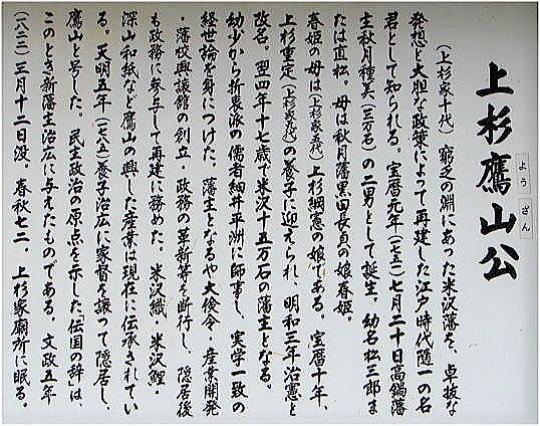 上杉鷹山公
ようざん
(上杉家十代) 窮乏の淵にあった米沢藩を、卓抜な
発想と大胆な政策によって再建した江戸時代随一の名
君として知られる。宝暦元年(一七五一)七月二十日高鍋藩
主秋月種美(三万石)の二男として誕生、幼名松三郎ま
たは直松。母は秋月藩黒田長貞の娘春姫。
春姫の母は(上杉家五代)上杉綱憲の娘である。宝暦十年、
上杉重定(上杉家九代)の養子に迎えられ、明和三年治憲と
改名。翌四年十七歳で米沢十五万石の藩主となる。
幼少から折衷派の儒者細井平洲に師事し、実学一致の
経世論を身につけた。藩主となるや大倹令・産業開発
・藩校興譲館の創立・政務の革新等を断行し、隠居後
も政務に参与して再建に務めた。米沢織・米沢鯉・
深山和紙など鷹山の興した産業は現在に伝承されてい
る。天明五年(一七八五)養子治広に家督を譲って隠居し、
鷹山と号した。民主政治の原点を示した「伝国の辞」は、
このとき新藩主治広に与えたものである。文政五年
(一八二二)三月十二日没。春秋七二、上杉家廟所に眠る。